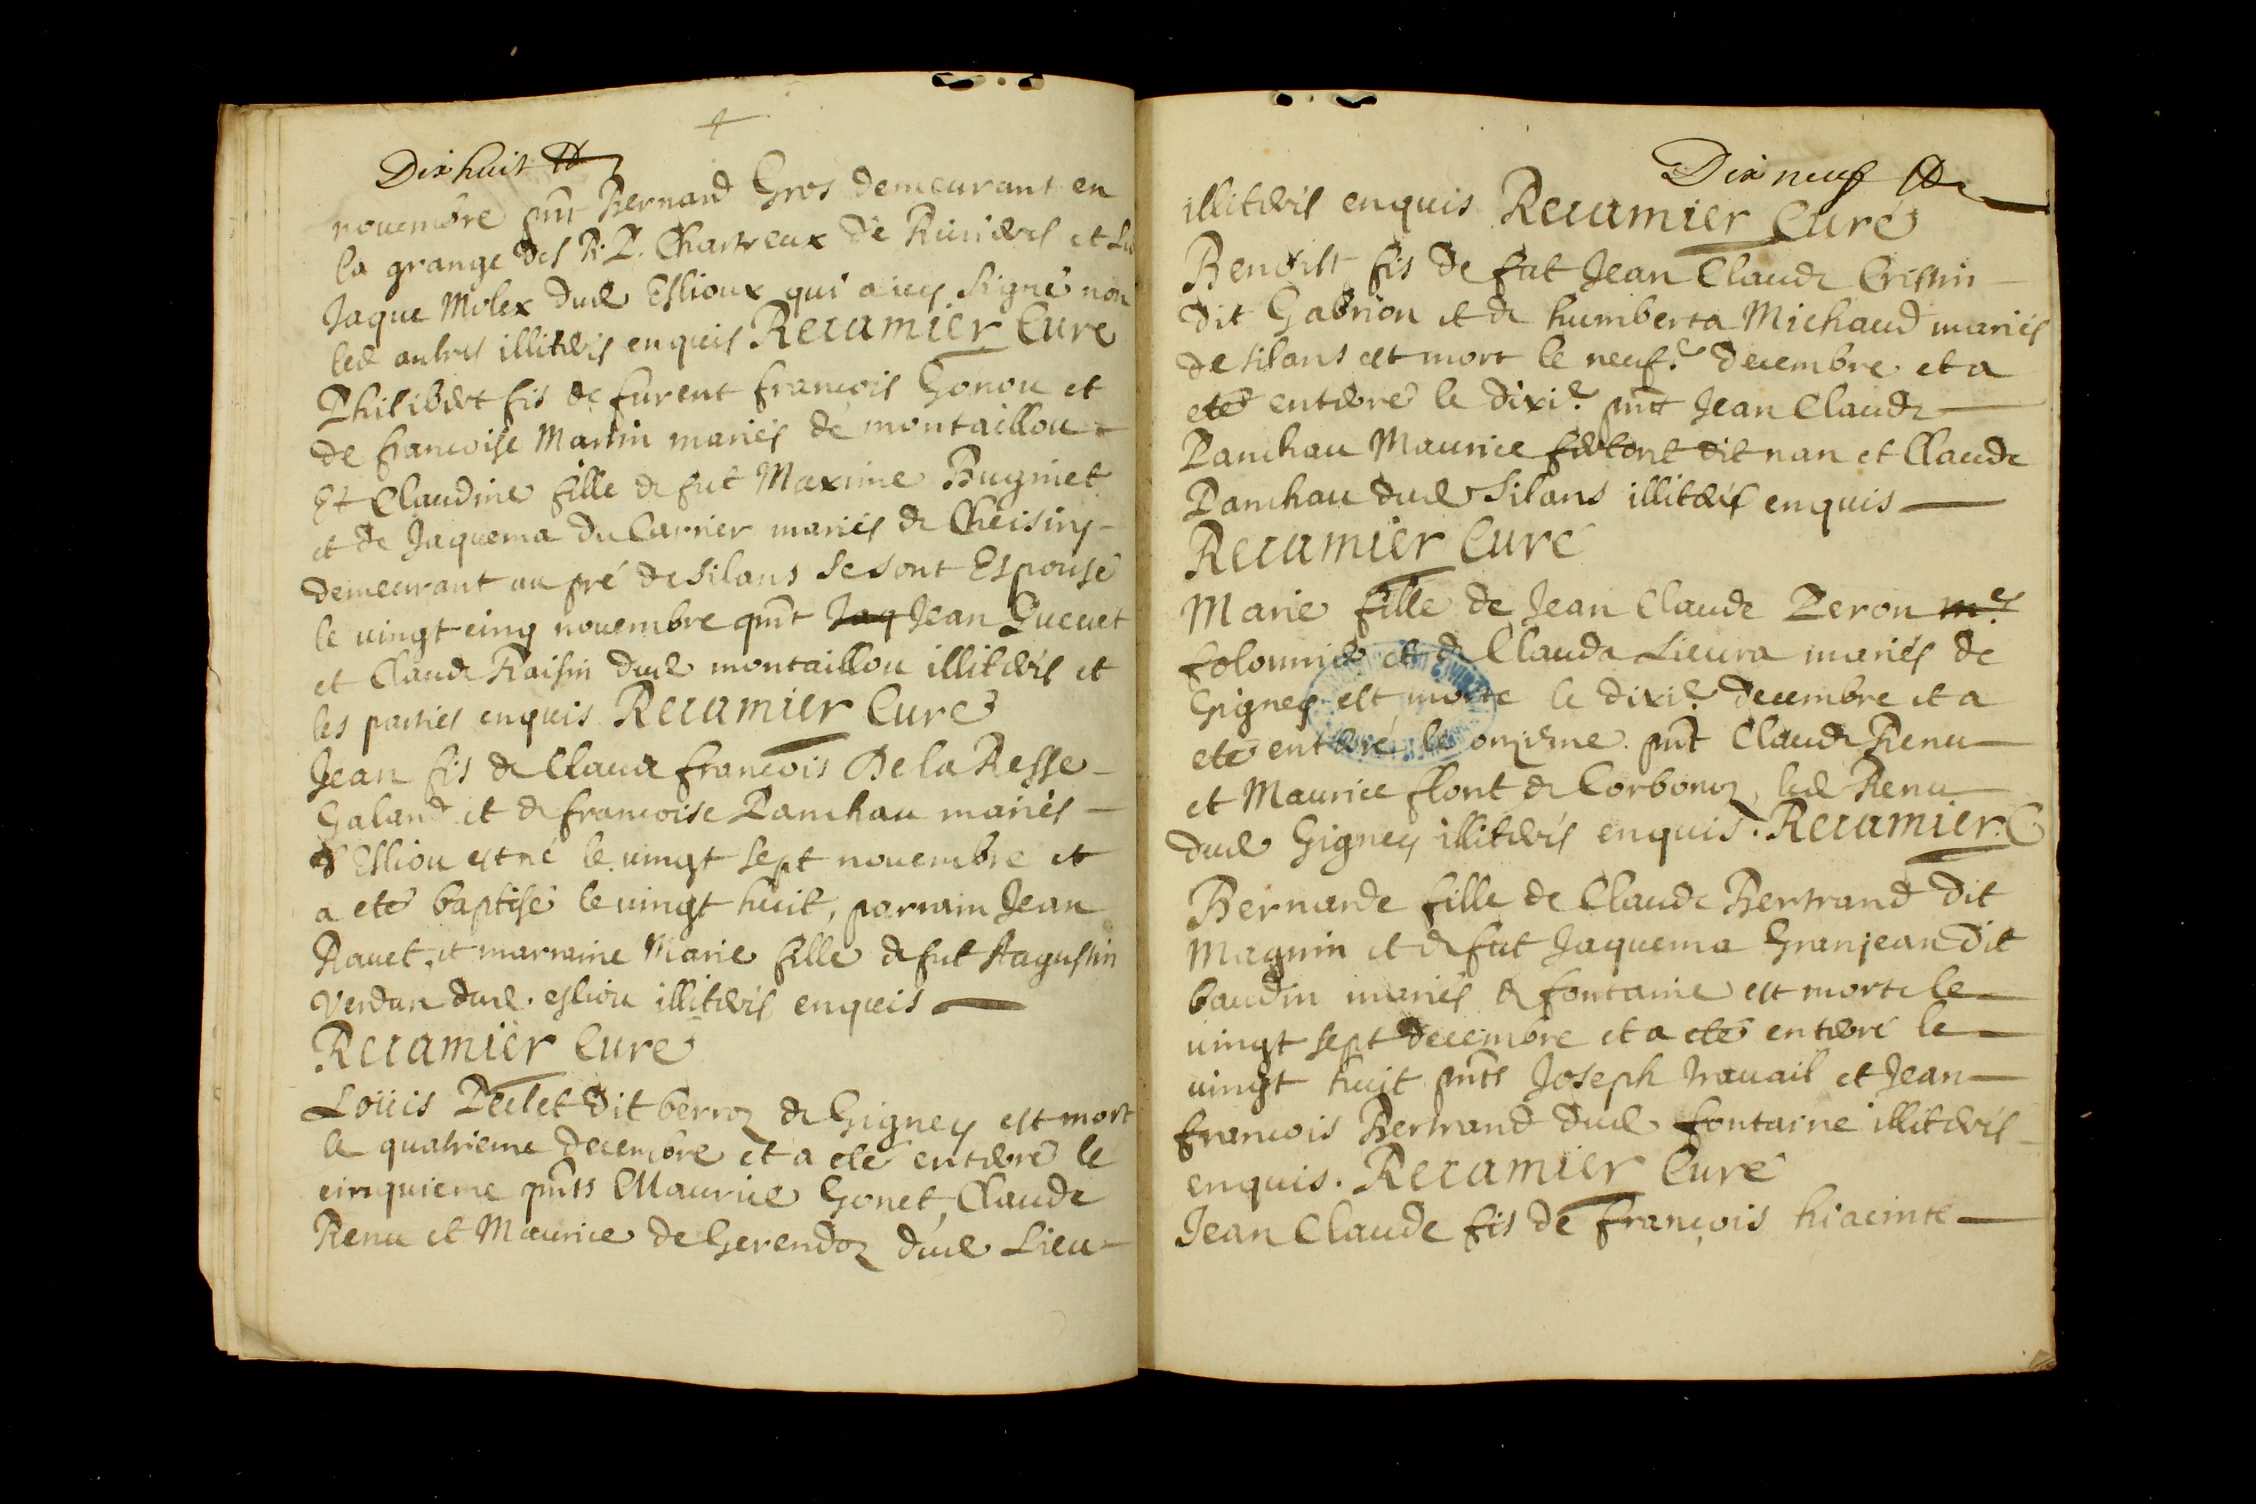 Dix huit
nouembre pnt Bernard Gros demeurant en
la grange des R. P. Chartreux de Riuieres et
Jaque Molex dud Eslioux qui a icy signé non
led autres illiterés enquis Recamier Curé
Philibert fis de furent francois Gonou et
de francoise Martin mariés de montaillou
Et Claudine fille de fut Maxime Bugniet
et de Jaquema Du Carrier mariés de Cheisins
demeurant au pré de silans se sont Espousé
le uingt cinq nouembre pnt Jaq Jean Gueuet
et Claude Raisin dud montaillou illiterés et
les parties enquis Recamier Curé
Jean fis de Claude francois De la Resse
Galand et de francoise Panchau mariés
d'Esliou est né le uingt sept nouembre et
a eté baptisé le uingt huit, parrain Jean
Rauet, et marraine Marie fille de fut Augustin
Verdan dud. esliou illiterés enquis
Recamier Curé
Loüis Peclet dit berroz de Gigney est mort
le quatrieme decembre et a eté enterré le
cinquieme pnts Maurice Gonet, Claude
Renu et Maurice de Gerendoz dud Lieu
Dix neuf
illiterés enquis Recamier Curé
Benoist fis de fut Jean Claude Crissin
dit Gabrion et de humberta Michaud mariés
de silans est mort le neuf.e decembre et a
eté enterré le dixi.e pnt Jean Claude
Panchau Maurice fertont dit nan et Claude
Panchau dud Silans illiterés enquis
Recamier Curé
Marie fille de Jean Claude Peron
folonnier et de Clauda Lieura mariés de
Gigney est morte le dixi.e decembre et a
eté enterré le onzieme pnt Claude Renu
et Maurice flont de Corbonoz, led Renu
dud Gigney illiterés enquis. Recamier. C
Bernarde fille de Claude Bertrand dit
Magnin et de fut Jaquema Granjean dit
baudin mariés de fontaine est morte le
uingt sept decembre et a eté enterré le
uingt huit pnts Joseph trauail et Jean
francois Bertrand dud fontaine illiterés
enquis. Recamier Curé
Jean Claude fis de françois hiacinte